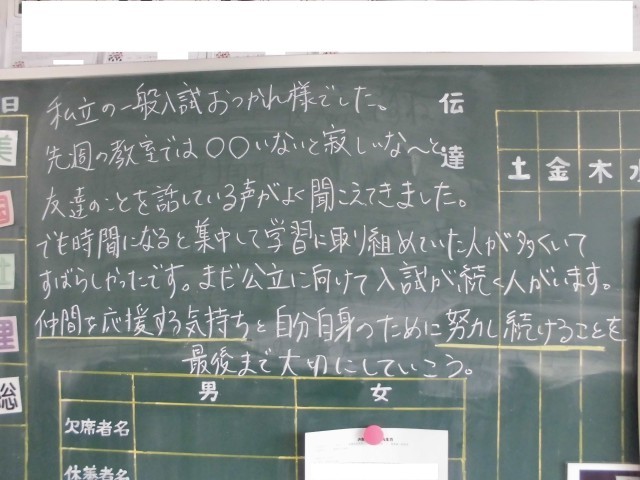 私立の一般入試おつかれ様でした。
先週の教室では〇〇いないと寂しいな～と
友達のことを話している声がよく聞こえてきました。
でも時間になると集中して学習に取り組めていた人が多くいて
すばらしかったです。まだ公立に向けて入試が続く人がいます。
仲間を応援する気持ちと自分自身のために努力し続けることを
最後まで大切にしていこう。
伝達
日
美
国
社
理
総
土 金 木 水
男 女
欠席者名
休養者名